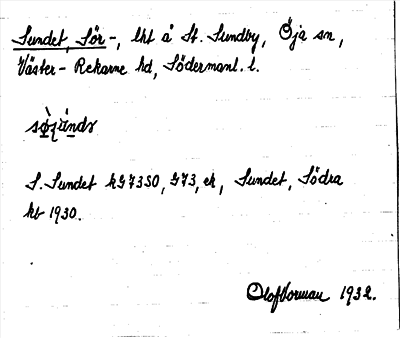 Sundet, Sör-, lht å St. Sundby, Öja sn,
Väster-Rekarne hd, Södermanl. l.
S. Sundet kG 7350, G73, ek, Sundet, Södra
kb 1930.
Olof Vorman 1932.